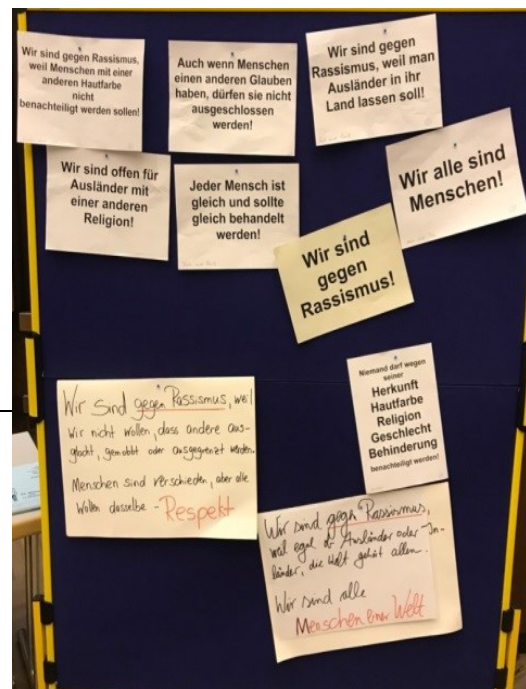 Wir sind gegen Rassismus,
weil Menschen mit einer
anderen Hautfarbe
nicht
benachteiligt werden sollen!
Auch wenn Menschen
einen anderen Glauben
haben, dürfen sie nicht
ausgeschlossen
werden!
Wir sind gegen
Rassismus, weil man
Ausländer in ihr
Land lassen soll!
Wir sind offen für
Ausländer mit
einer anderen
Religion!
Jeder Mensch ist
gleich und sollte
gleich behandelt
werden!
Wir alle sind
Menschen!
Wir sind
gegen
Rassismus!
Niemand darf wegen
seiner
Herkunft
Hautfarbe
Religion
Geschlecht
Behinderung
benachteiligt werden!
Wir sind gegen Rassismus, weil
wir nicht wollen, dass andere aus-
gelacht, gemobbt oder ausgegrenzt werden.
Menschen sind verschieden, aber alle
wollen dasselbe - Respekt
Wir sind gegen Rassismus,
weil egal ob Ausländer oder In-
länder, die Welt gehört allen.
Wir sind alle
Menschen einer Welt